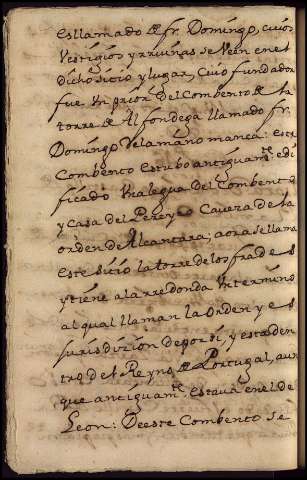 es llamado de fr. Domingo, cuios
Vestigios y rruinas se Veen en el
dicho sitio y lugar, Cuio fundador
fue Un prior del Combento de la
torre de Alfondega llamado fr.
Domingo Velamano manca: este
Combento estubo antiguamte. edi
ficado Una legua del Combento
y Casa del Pereyro Cavera de la
orden de Alcantara, aora se llama
este sitio la torre de los frades
y tiene a la rredonda Un termino
al qual llaman la Orden y es
jurisdizion de por si, y esta den
tro del Reyno de Portugal, aun
que antiguamte. estava en el de
Leon: De este Combento se